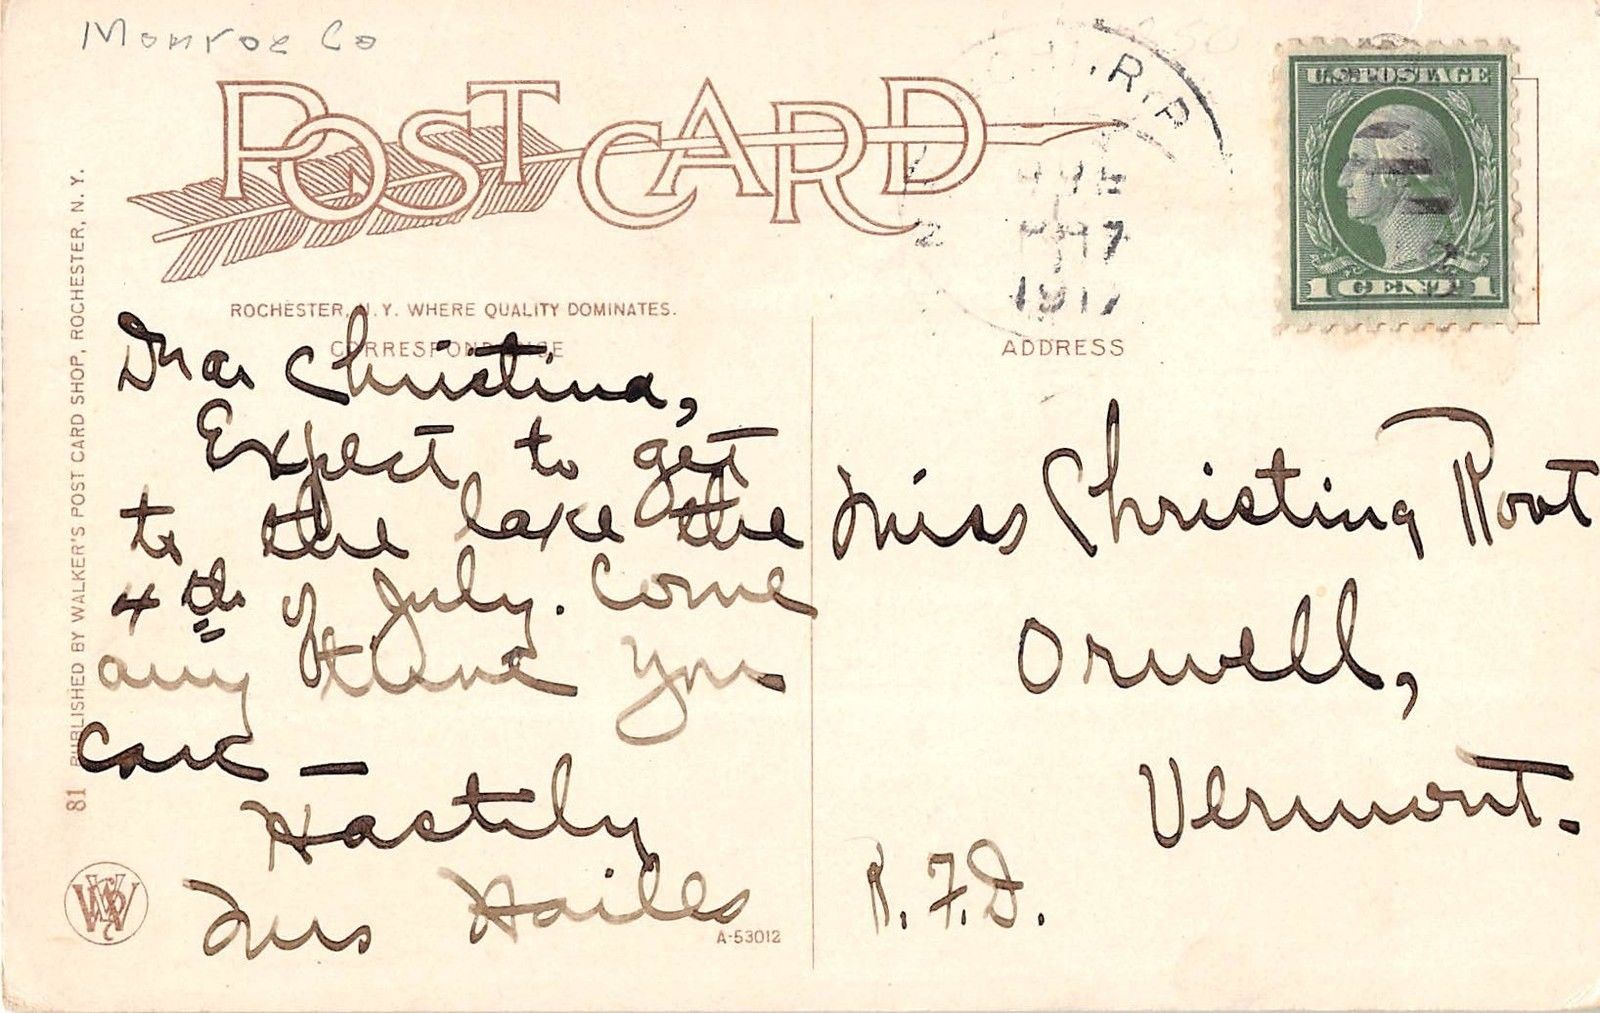 Monroe Co
POST CARD
R.P.
2
1917
U.S. POSTAGE
1 CENT 1
ROCHESTER, N.Y. WHERE QUALITY DOMINATES.
CORRESPONDENCE
ADDRESS
PUBLISHED BY WALKER'S POST CARD SHOP, ROCHESTER, N.Y.
81
Dear Christina,
Expect to get
to the lake the
4th of July. Come
any time you
care —
Hastily
Mrs Hailes
A-53012
Miss Christina Root
Orwell,
Vermont.
R.F.D.